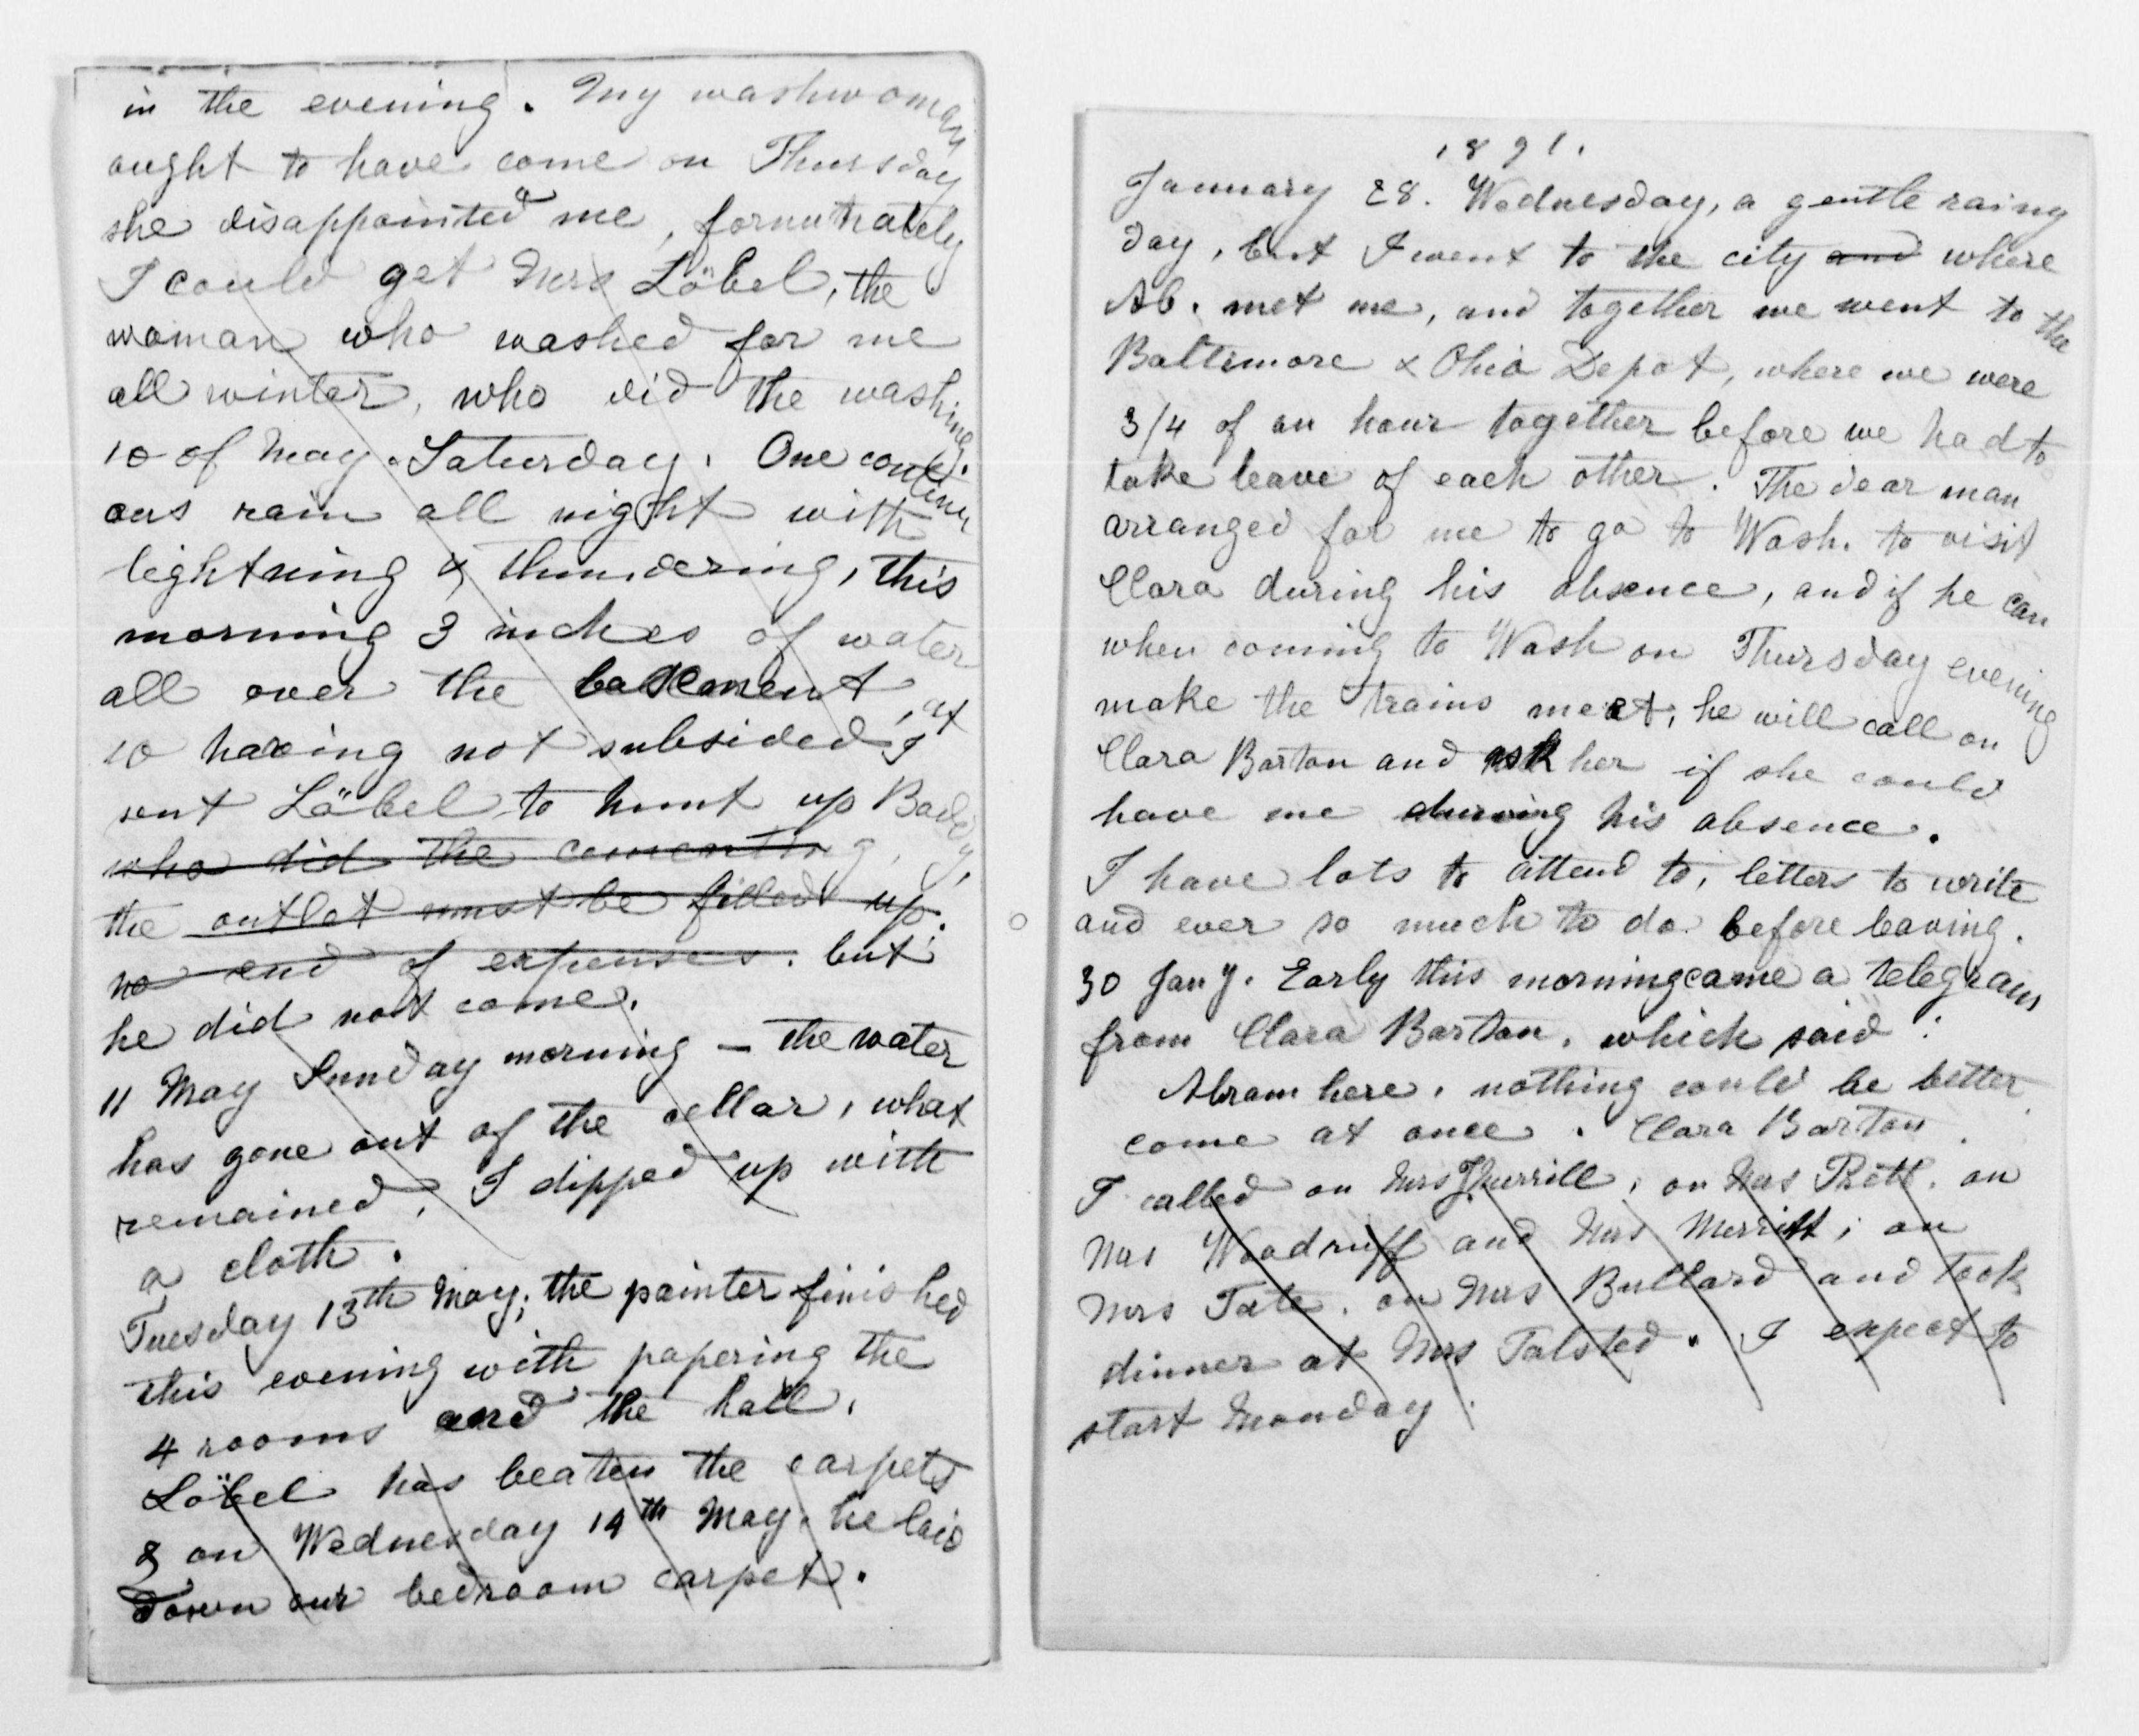 in the evening. My washwoman
ought to have come on Thursday
she disappointed me, fornutnately
I could get Mrs Löbel, the
woman who washed for me
all winter, who did the washing.
10 of May. Saturday. One continu
ous rain all night with
lightning & thundering, this
morning 3 inches of water
all over the basement, at
10 having not subsided, I
sent Löbel to hunt up
who did the cementing,
the outlet must be filled up.
no end of expenses. but
he did not come.
11 May Sunday morning – the water
has gone out of the cellar, what
remained, I dipped up with
a cloth.
Tuesday 13th May; the painter finished
this evening with papering the
4 rooms and the hall.
Löbel has beaten the carpets
& on Wednesday 14th May he laid
down our bedroom carpet.
1891.
January 28. Wednesday, a gentle rainy
day, but I went to the city and where
Ab. met me, and together we went to the
Baltimore & Ohio Depot, where we were
3/4 of an hour together before we had to
take leave of each other. The dear man
arranged for me to go to Wash. to visit
Clara during his absence, and if he can
when coming to Wash on Thursday evening
make the trains meet, he will call on
Clara Barton and ask her if she could
have me during his absence.
I have lots to attend to, letters to write
and ever so much to do before leaving.
30 Jany. Early this morning came a telegram
from Clara Barton, which said:
Abram here, nothing could be better
come at once. Clara Barton.
I called on Mrs on Mrs on
Mrs Woodruff and Mrs Merritt; on
Mrs Tate. on Mrs Bullard and took
dinner at Mrs Talsted. I expect to
start Monday.